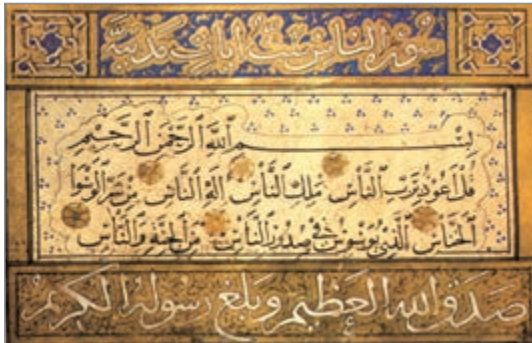 سورة الناس ست آيات مدنية
بِسْمِ ٱللَّهِ ٱلرَّحْمَٰنِ ٱلرَّحِيمِ
قُلْ أَعُوذُ بِرَبِّ ٱلنَّاسِ مَلِكِ ٱلنَّاسِ إِلَٰهِ ٱلنَّاسِ مِن شَرِّ ٱلْوَسْوَاسِ
ٱلْخَنَّاسِ ٱلَّذِي يُوَسْوِسُ فِي صُدُورِ ٱلنَّاسِ مِنَ ٱلْجِنَّةِ وَٱلنَّاسِ
صدق الله العظيم وبلغ رسوله الكريم